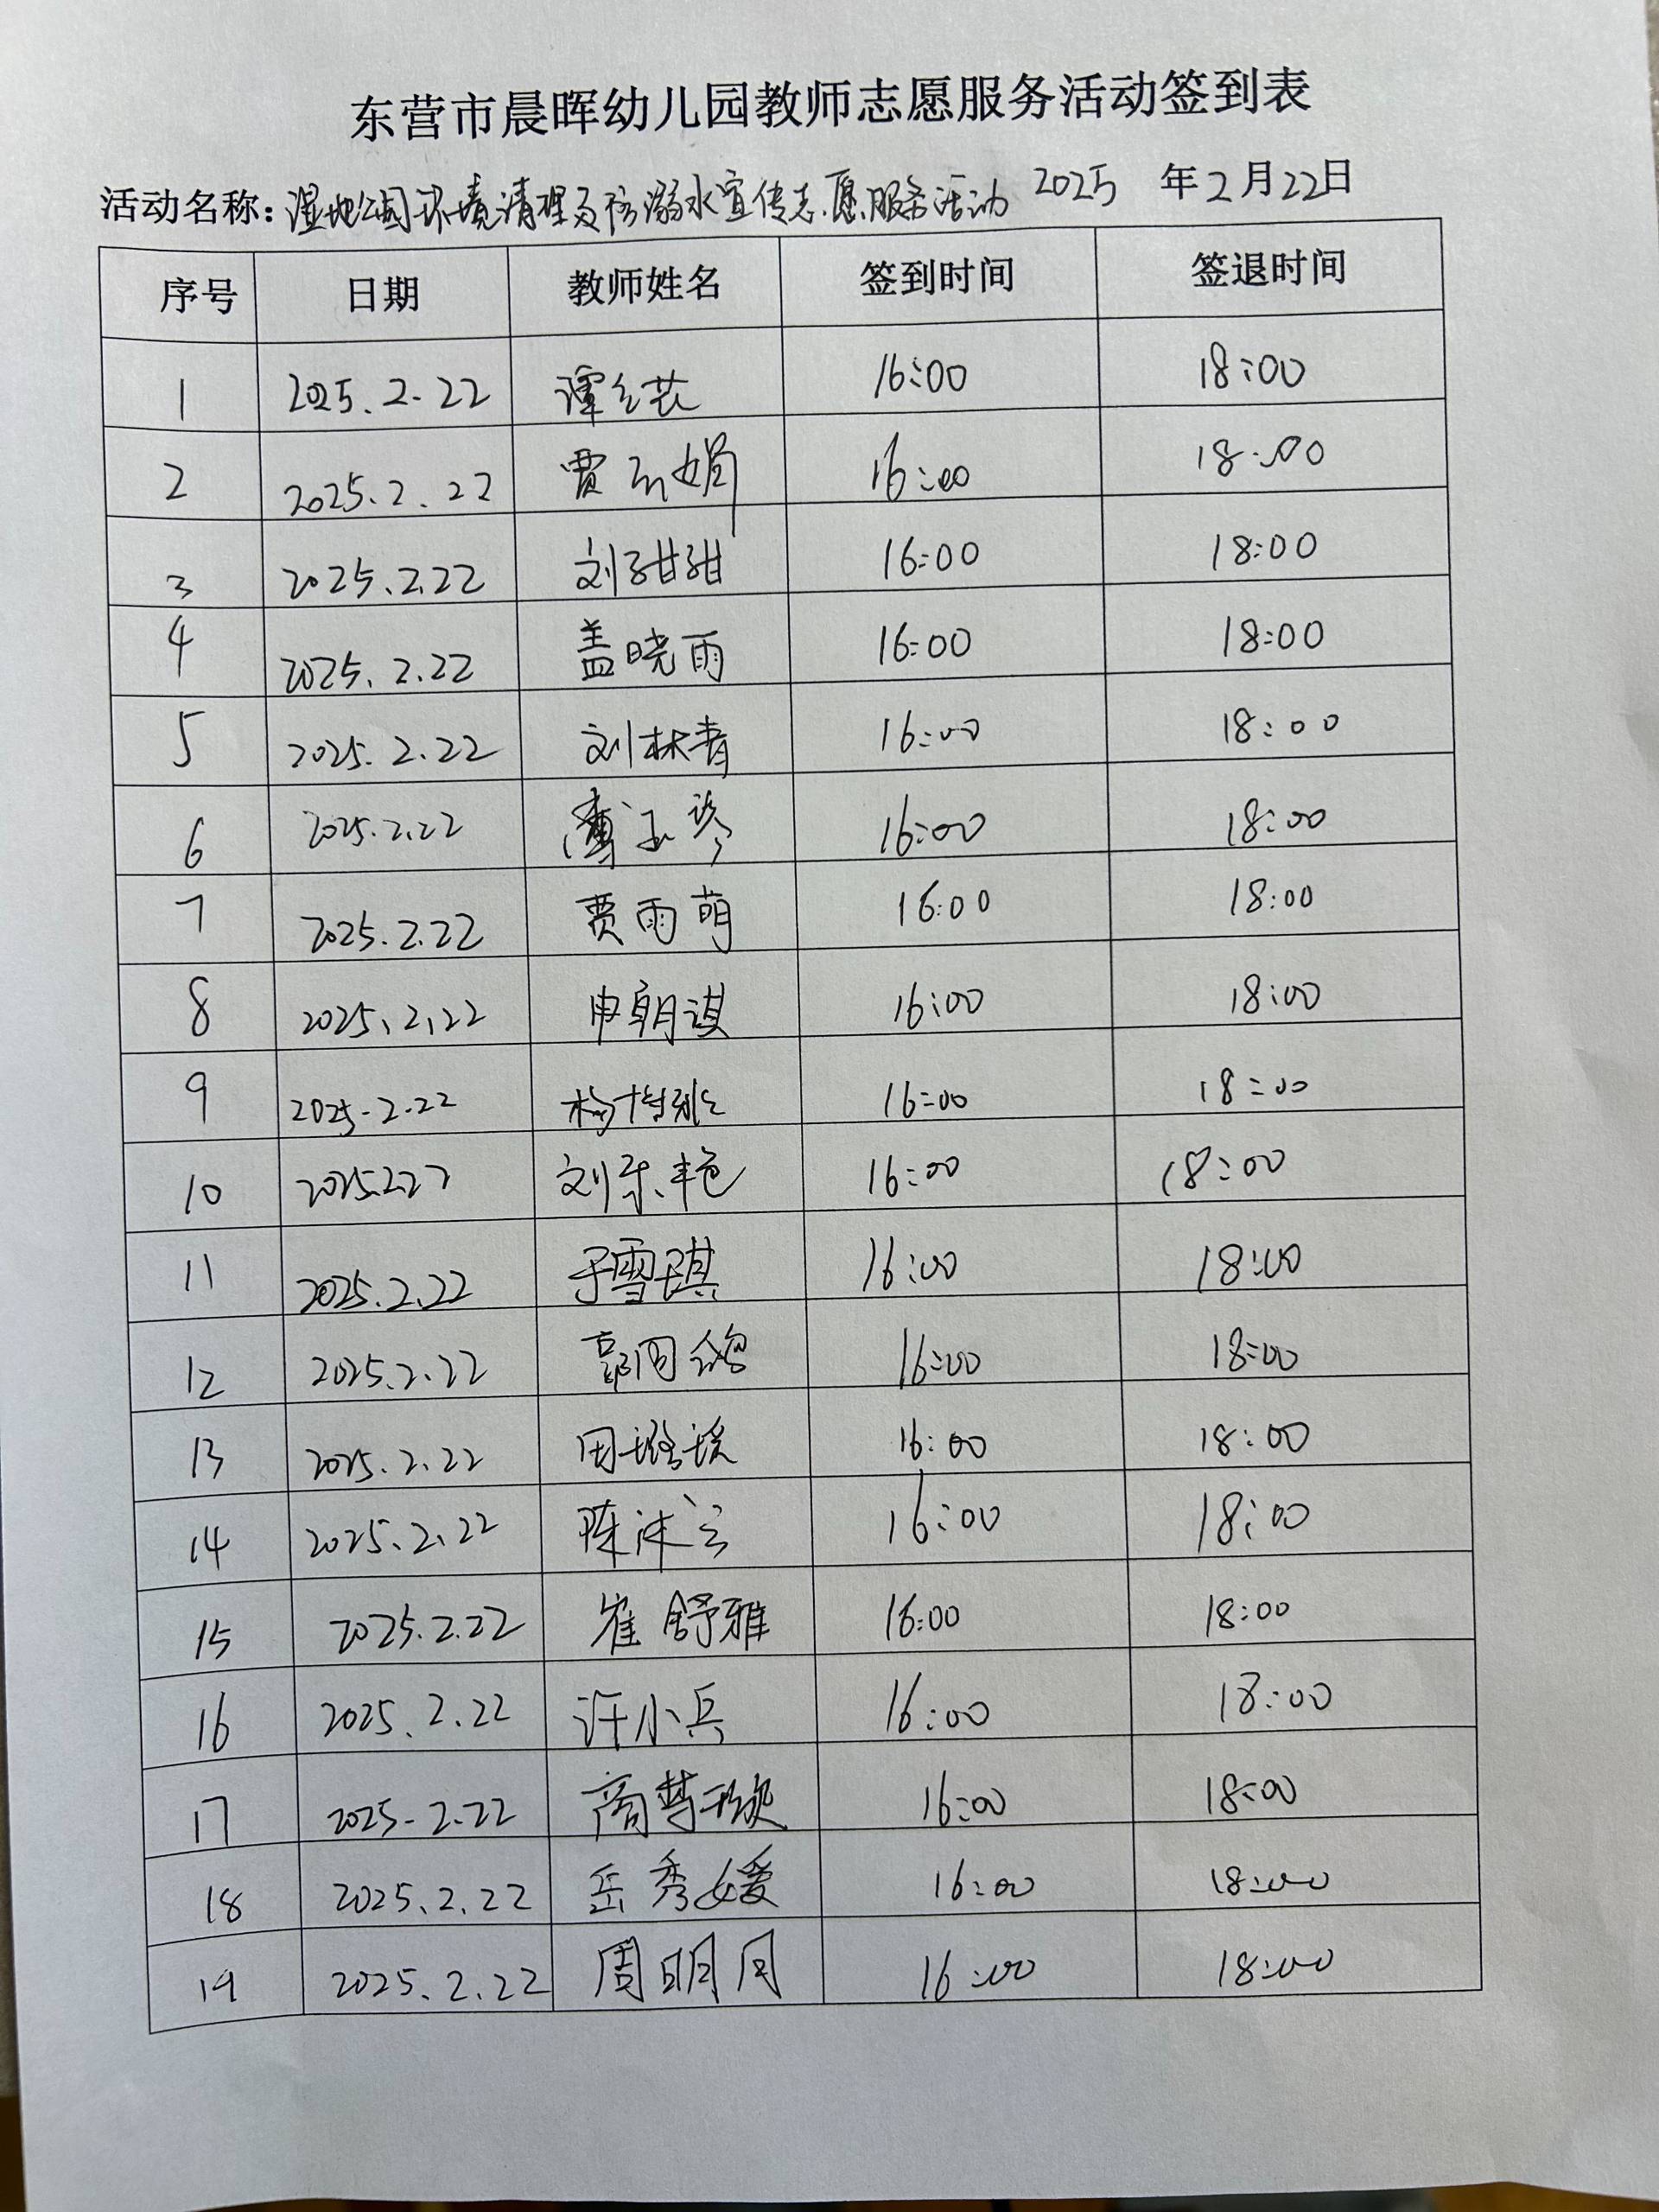 东营市晨晖幼儿园教师志愿服务活动签到表
活动名称：湿地公园环境清理及防溺水宣传志愿服务活动 2025 年2月22日
序号 日期 教师姓名 签到时间 签退时间
1 2025.2.22 谭 16:00 18:00
2 2025.2.22 贾 娟 16:00 18:00
3 2025.2.22 刘甜甜 16:00 18:00
4 2025.2.22 盖晓雨 16:00 18:00
5 2025.2.22 刘林青 16:00 18:00
6 2025.2.22 16:00 18:00
7 2025.2.22 贾雨萌 16:00 18:00
8 2025.2.22 申朝淇 16:00 18:00
9 2025.2.22 杨 16:00 18:00
10 2025.2.22 刘东艳 16:00 18:00
11 2025.2.22 于雪琪 16:00 18:00
12 2025.2.22 郭 16:00 18:00
13 2025.2.22 田璐瑶 16:00 18:00
14 2025.2.22 陈沐言 16:00 18:00
15 2025.2.22 崔舒雅 16:00 18:00
16 2025.2.22 许小兵 16:00 18:00
17 2025.2.22 商梦 16:00 18:00
18 2025.2.22 岳秀媛 16:00 18:00
19 2025.2.22 周明月 16:00 18:00